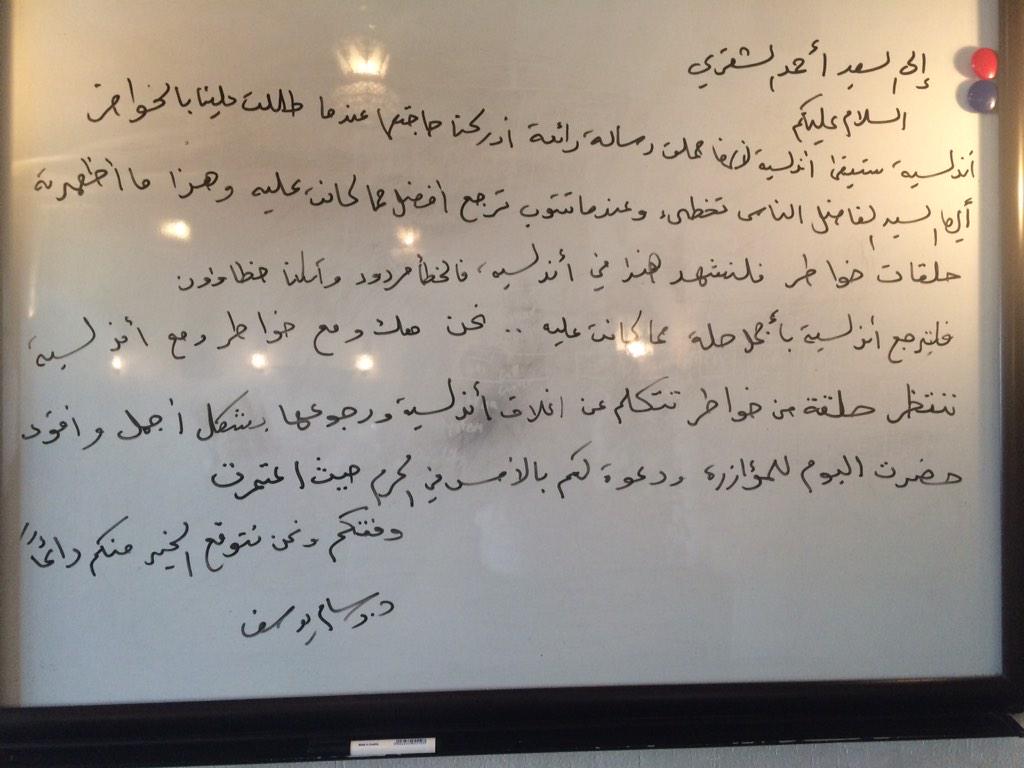 إلى السيد أحمد الشقيري
السلام عليكم
أندلسية ستبقى أندلسية لأنها حملت رسالة رائعة أدركنا حاجتها عندما طللت علينا بالخواطر
أيها السيد الفاضل الناس تخطىء وعندما تتوب ترجع أفضل مما كانت عليه وهذا ما أظهرته
حلقات خواطر فلنشهد هذا في أندلسية، فالخطأ مردود وكلنا خطاؤون
فلترجع أندلسية بأجمل حلة مما كانت عليه .. نحن معك ومع خواطر ومع أندلسية،
ننتظر حلقة من خواطر تتكلم عن اغلاق أندلسية ورجوعها بشكل أجمل وأقوى
حضرت اليوم للمؤازرة ودعوة لكم بالأمس في الحرم حيث اعتمرت
وفقكم ونحن نتوقع الخير منكم دائماً
د. وسام يوسف